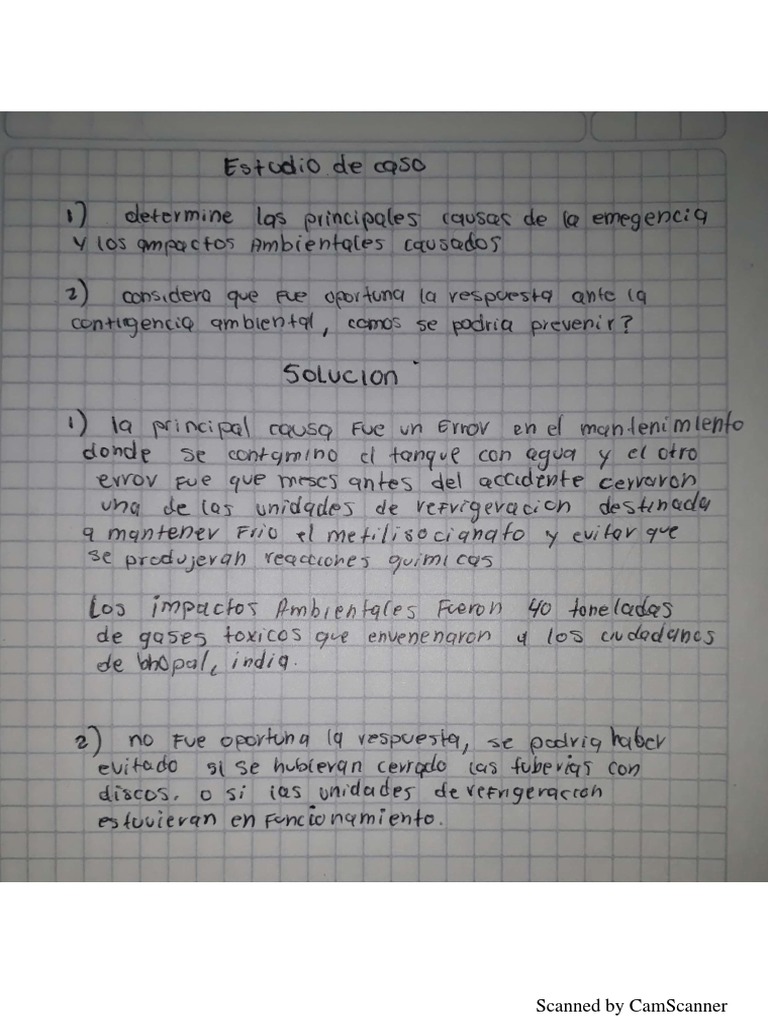 Estudio de caso
1) determine las principales causas de la emegencia
y los impactos Ambientales causados
2) considera que fue oportuna la respuesta ante la
contigencia ambiental, comos se podria prevenir?
Solucion
1) la principal causa fue un Error en el mantenimiento
donde se contamino el tanque con agua y el otro
error fue que meses antes del accidente cerraron
una de las unidades de refrigeracion destinada
a mantener Frio el metilisocianato y evitar que
se produjeran reacciones quimicas
Los impactos Ambientales Fueron 40 toneladas
de gases toxicos que envenenaron a los ciudadanos
de bhopal, india.
2) no fue oportuna la respuesta, se podria haber
evitado si se hubieran cerrado las tuberias con
discos. o si las unidades de refrigeracion
estuvieran en Funcionamiento.
Scanned by CamScanner